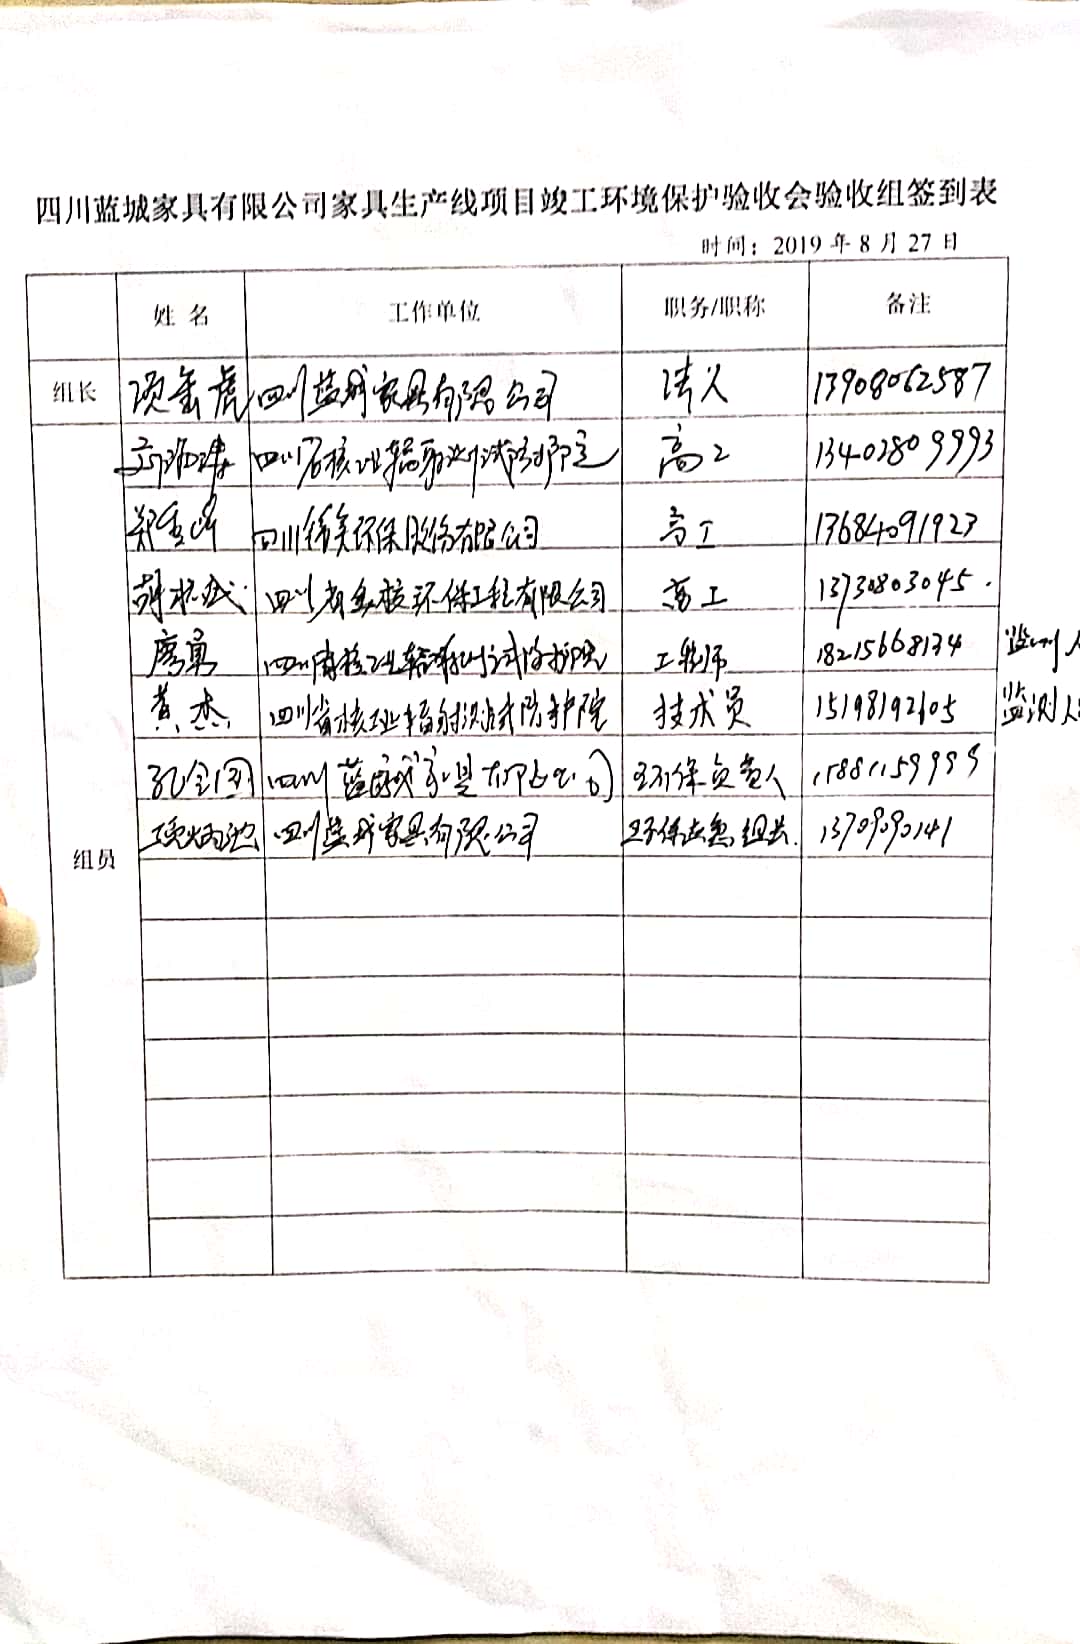 四川蓝城家具有限公司家具生产线项目竣工环境保护验收会验收组签到表
时间：2019 年 8 月 27 日
姓 名 工作单位 职务/职称 备注
组长 项金虎 四川蓝城家具有限公司 法人 13908062587
四川省核工业辐射测试防护院 高工 13402809993
郑 四川 环保股份有限公司 高工 13684091923
四川省 核环保工程有限公司 高工 13730803045.
廖勇 四川省核工业辐射测试防护院 工程师 18215668134 监测人
黄杰 四川省核工业辐射测试防护院 技术员 15198192605 监测人
四川蓝城家具有限公司 环保负责人 15881159999
项炳池 四川蓝城家具有限公司 环保应急组长. 13709090141
组员